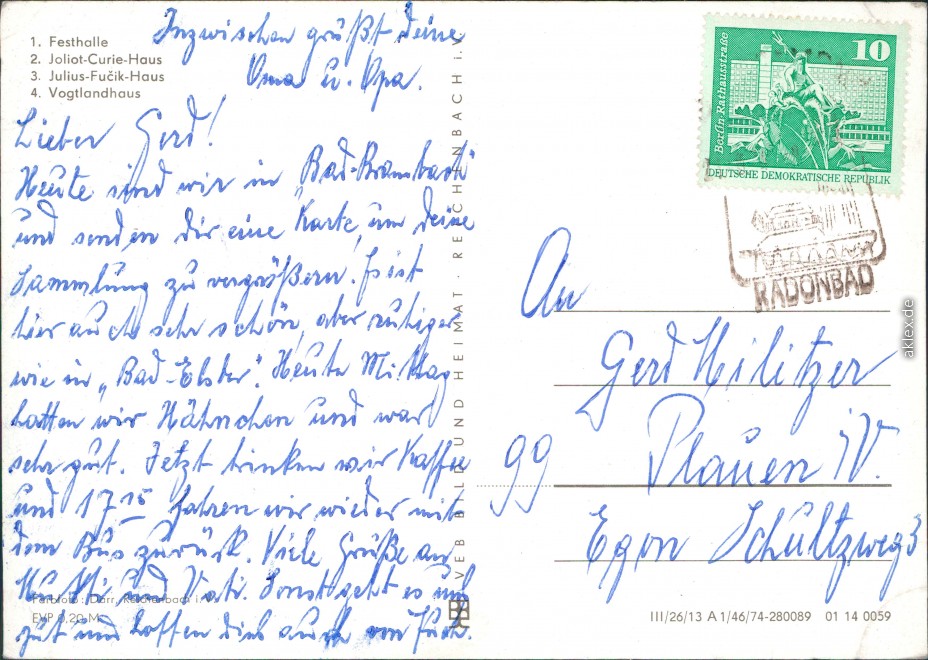 Inzwischen grüßt deine
Oma u. Opa.
1. Festhalle
2. Joliot-Curie-Haus
3. Julius-Fučik-Haus
4. Vogtlandhaus
Lieber Gerd!
Heute sind wir in "Bad-Brambach"
und senden dir eine Karte, um deine
Sammlung zu vergrößern. Es ist
hier auch sehr schön, aber ruhiger
wie in „Bad-Elster". Heute Mittag
hatten wir Hähnchen und war
sehr gut. Jetzt trinken wir Kaffee
und 17 15 fahren wir wieder mit
dem Bus zurück. Viele Grüße an
Mutti und Vati. Sonst geht es uns
gut und hoffen dies auch von Euch.
Farbfoto: Darr, Reichenbach i. V.
EVP 0,20 M
VEB BILD UND HEIMAT · REICHENBACH i. V.
10
Berlin Rathausstraße
DEUTSCHE DEMOKRATISCHE REPUBLIK
RADONBAD
An
Gerd Hilitzer
99 Plauen i/V.
Egon Schultzweg 3
III/26/13 A 1/46/74-280089 01 14 0059
aklex.de